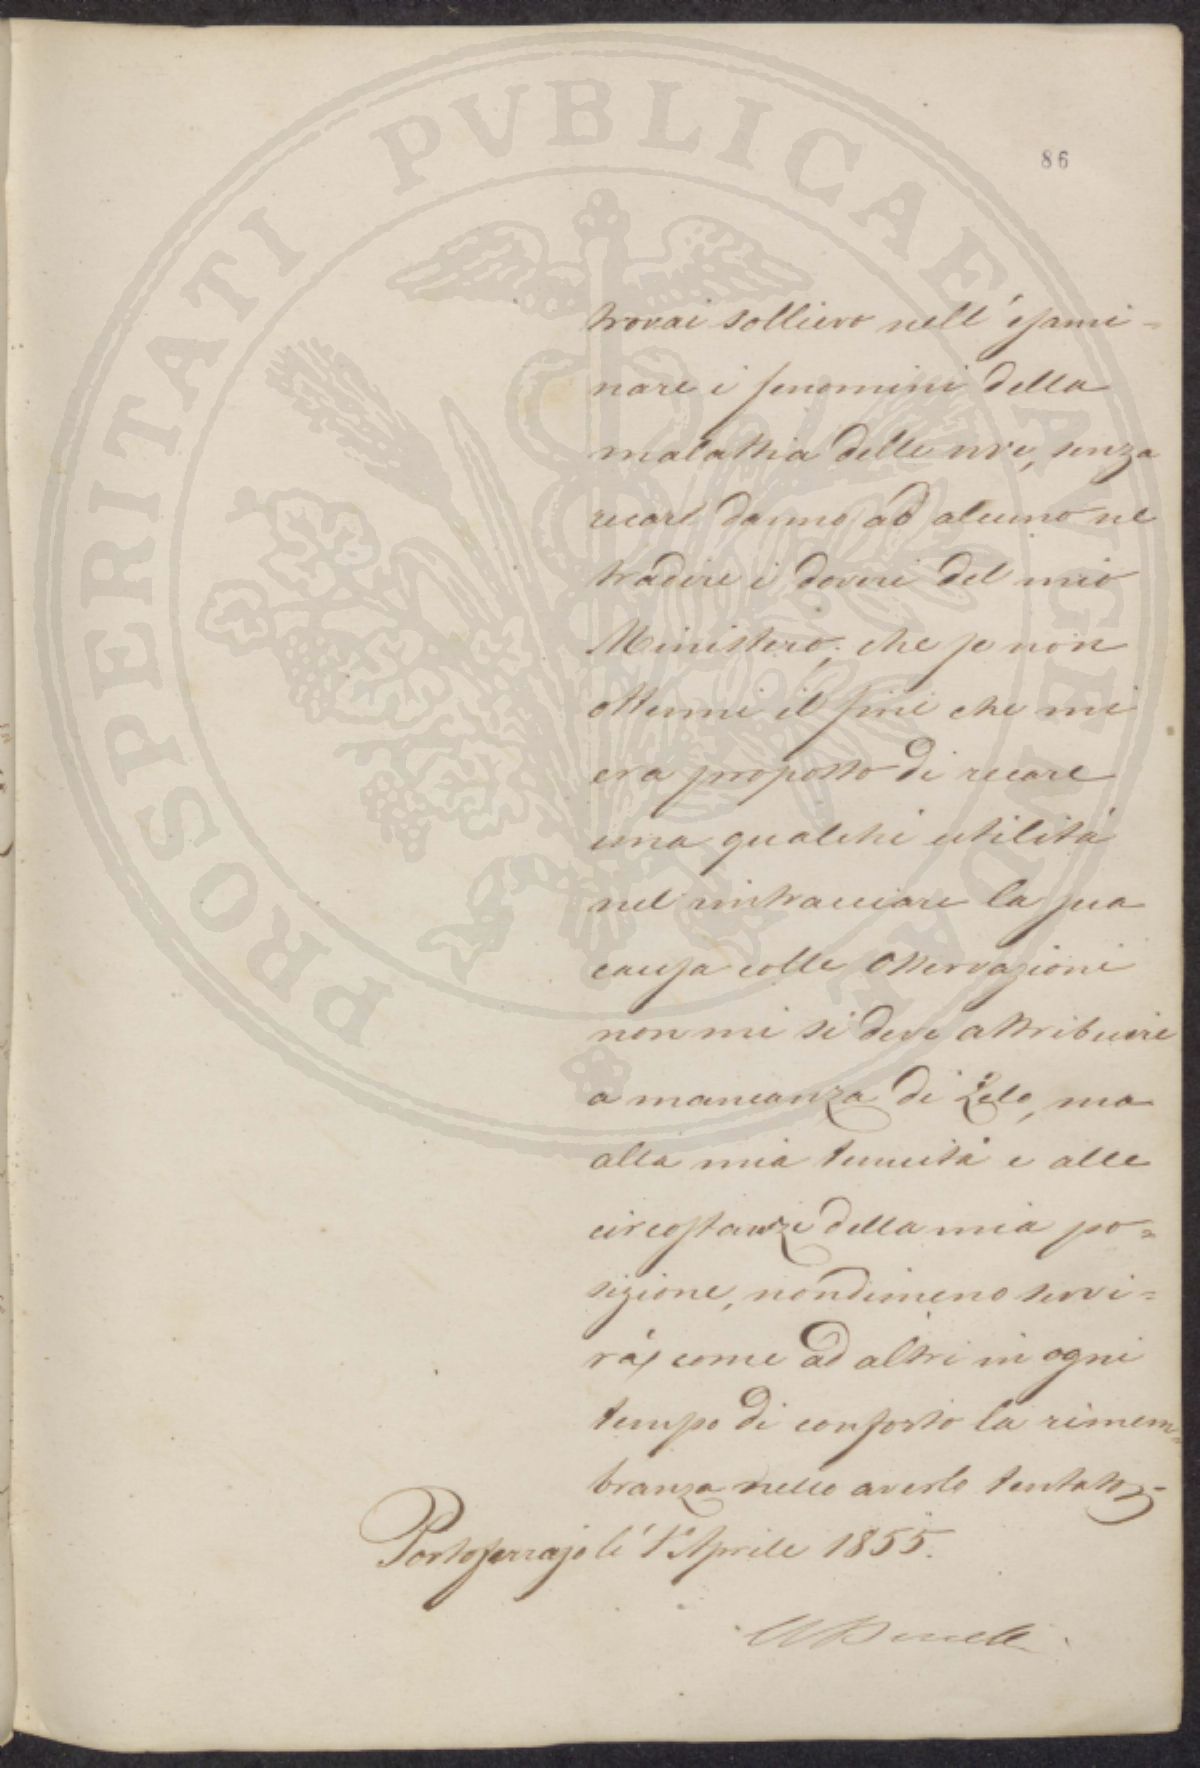 PROSPERITATI PVBLICAE AVGENDAE
86
trovai sollievo nell' esami=
nare i fenomini della
malattia delle uve, senza
recare danno ad alcuno ne
tradire i doveri del mio
Ministero; che se non
ottenni il fine che mi
era proposto di recare
una qualche utilità
nel rintracciare la sua
causa colle Osservazioni
non mi si deve attribuire
a mancanza di Zelo, ma
alla mia tenuità e alle
circostanze della mia po=
sizione, nondimeno servi=
rà, come ad altri in ogni
tempo di conforto la rimem=
branza nello averlo tentato
Portoferrajo li 1° Aprile 1855.